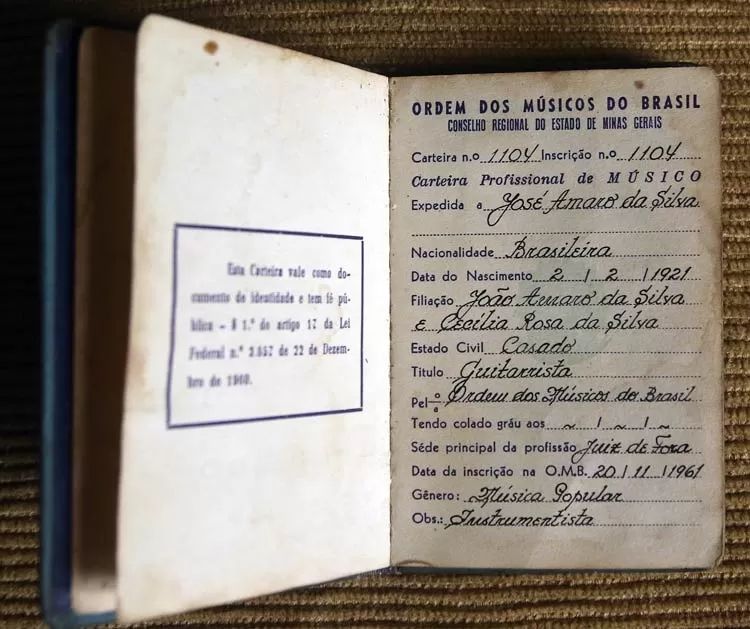 Esta Carteira vale como do-
cumento de identidade e tem fé pú-
blica - § 1.º do artigo 17 da Lei
Federal n.º 3.857 de 22 de Dezem-
bro de 1960.
ORDEM DOS MÚSICOS DO BRASIL
CONSELHO REGIONAL DO ESTADO DE MINAS GERAIS
Carteira n.o 1104 Inscrição n.o 1104
Carteira Profissional de MÚSICO
Expedida a José Amaro da Silva
Nacionalidade Brasileira
Data do Nascimento 2 / 2 / 1921
Filiação João Amaro da Silva
e Cecília Rosa da Silva
Estado Civil Casado
Titulo Guitarrista
Pel o/a Ordem dos Músicos do Brasil
Tendo colado gráu aos ~ / ~ / ~
Séde principal da profissão Juiz de Fora
Data da inscrição na O.M.B. 20 / 11 / 1961
Gênero: Música Popular
Obs.: Instrumentista